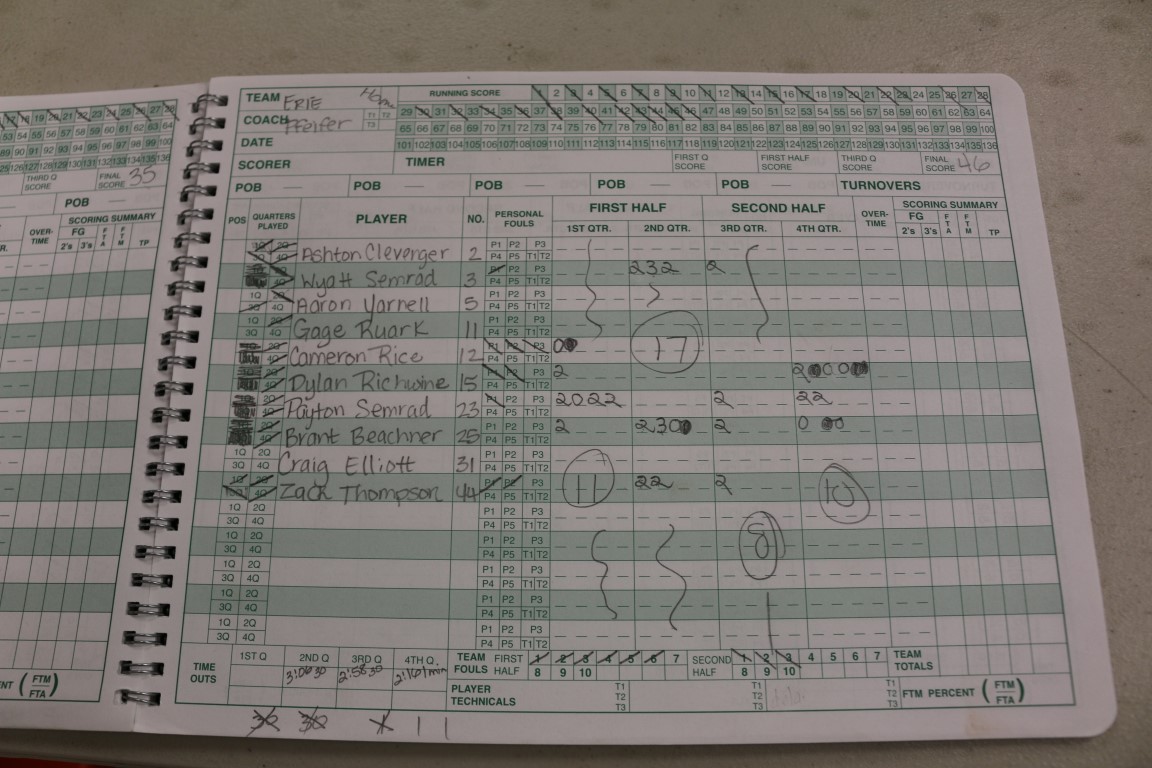 TEAM ERIE RUNNING SCORE 1 2 3 4 5 6 7 8 9 10 11 12 13 14 15 16 17 18 19 20 21 22 23 24 25 26 27 28
COACH Pfeifer T1 T2 T3 29 30 31 32 33 34 35 36 37 38 39 40 41 42 43 44 45 46 47 48 49 50 51 52 53 54 55 56 57 58 59 60 61 62 63 64
65 66 67 68 69 70 71 72 73 74 75 76 77 78 79 80 81 82 83 84 85 86 87 88 89 90 91 92 93 94 95 96 97 98 99 100
DATE 101 102 103 104 105 106 107 108 109 110 111 112 113 114 115 116 117 118 119 120 121 122 123 124 125 126 127 128 129 130 131 132 133 134 135 136
SCORER TIMER FIRST Q SCORE FIRST HALF SCORE THIRD Q SCORE FINAL SCORE 46
THIRD Q SCORE FINAL SCORE 35
POB POB POB POB POB TURNOVERS
POB
SCORING SUMMARY
OVER-TIME FG 2's 3's FTA FTM TP
POS QUARTERS PLAYED PLAYER NO. PERSONAL FOULS FIRST HALF SECOND HALF OVER-TIME SCORING SUMMARY
1ST QTR. 2ND QTR. 3RD QTR. 4TH QTR. FG 2's 3's FTA FTM TP
Ashton Clevenger 2 P1 P2 P3 P4 P5 T1 T2
Wyatt Semrad 3 P1 P2 P3 P4 P5 T1 T2 232 2
1Q 2Q 3Q 4Q Aaron Yarnell 5 P1 P2 P3 P4 P5 T1 T2
1Q 2Q 3Q 4Q Gage Ruark 11 P1 P2 P3 P4 P5 T1 T2
17
Cameron Rice 12 P1 P2 P3 P4 P5 T1 T2
Dylan Richwine 15 P1 P2 P3 P4 P5 T1 T2 2
Payton Semrad 23 P1 P2 P3 P4 P5 T1 T2 2022 2 22
Brant Beachner 25 P1 P2 P3 P4 P5 T1 T2 2 230 2
1Q 2Q 3Q 4Q Craig Elliott 31 P1 P2 P3 P4 P5 T1 T2
Zack Thompson 44 P1 P2 P3 P4 P5 T1 T2 11 22 2 10
1Q 2Q 3Q 4Q P1 P2 P3 P4 P5 T1 T2
1Q 2Q 3Q 4Q P1 P2 P3 P4 P5 T1 T2 8
1Q 2Q 3Q 4Q P1 P2 P3 P4 P5 T1 T2
1Q 2Q 3Q 4Q P1 P2 P3 P4 P5 T1 T2
1Q 2Q 3Q 4Q P1 P2 P3 P4 P5 T1 T2
TIME OUTS 1ST Q 2ND Q 3RD Q 4TH Q. TEAM FOULS FIRST HALF 1 2 3 4 5 6 7 8 9 10 SECOND HALF 1 2 3 4 5 6 7 8 9 10 TEAM TOTALS
3:06 30 2:58 30 2:16 1 min
PLAYER TECHNICALS T1 T2 T3 T1 T2 T3 T1 T2 T3 FTM PERCENT (FTM FTA)